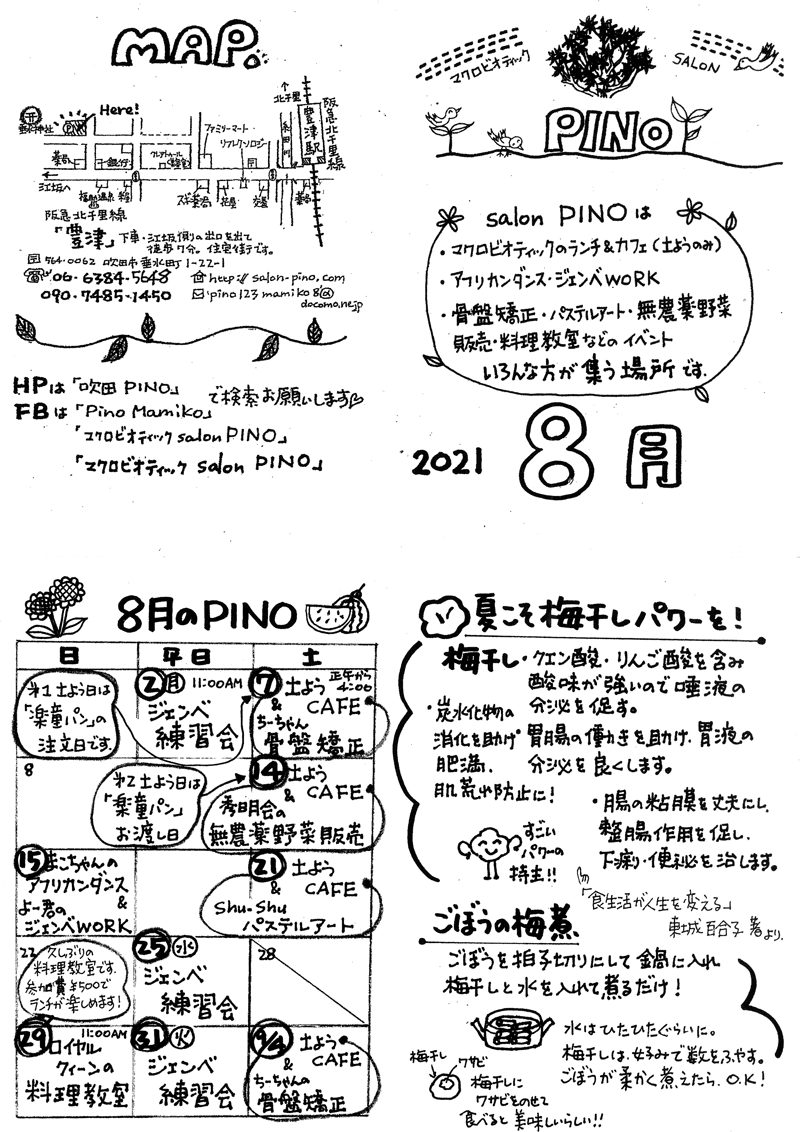 MAP.
Here!
PiNO
垂水神社
↑北千里
阪急北千里線
豊津駅
ファミリーマート
リアルクリーンロジー
薬局
千銀行
江坂へ
スギ薬局
花屋
交番
薬局
阪急北千里線
「豊津」下車・江坂側の出口を出て
徒歩7分。住宅街です。
564-0062 吹田市垂水町1-22-1
06-6384-5648
http://salon-pino.com
090-7485-1450
pino123mamiko8@
docomo.ne.jp
HPは「吹田PINO」
で検索お願いします
FBは「Pino Mamiko」
「マクロビオティック salon PINO」
「マクロビオティック salon PINO」
マクロビオティック
SALON
PINO
salon PINOは
・マクロビオティックのランチ&カフェ(土ようのみ)
・アフリカンダンス・ジェンベWORK
・骨盤矯正・パステルアート・無農薬野菜
販売・料理教室などのイベント
いろんな方が集う場所です.
2021 8月
8月のPINO
日 平日 土
第1土よう日は
「楽童パン」の
注文日です。
2 月 11:00AM
ジェンベ
練習会
7 土よう 正午から
4:00
CAFE
&
ちーちゃん
骨盤矯正
8
第2土よう日は
「楽童パン」
お渡し日
14 土よう
& CAFE
秀明会の
無農薬野菜販売
15 まこちゃんの
アフリカンダンス
&
よー君の
ジェンベWORK
21 土よう
& CAFE
Shu-Shu
パステルアート
22 久しぶりの
料理教室です。
参加費¥500で
ランチが楽しめます!
25 水
ジェンベ
練習会
28
29 11:00AM
ロイヤル
クィーンの
料理教室
31 火
ジェンベ
練習会
9/4 土よう
CAFE
&
ちーちゃんの
骨盤矯正
夏こそ梅干しパワーを!
梅干し・クエン酸・りんご酸を含み
酸味が強いので唾液の
分泌を促す。
・炭水化物の
消化を助け
肥満、
肌荒れ防止に!
胃腸の働きを助け、胃液の
分泌を良くします。
・腸の粘膜を丈夫にし、
整腸作用を促し、
下痢・便秘を治します。
すごい
パワーの
持主!!
「食生活が人生を変える」
東城百合子 著より.
ごぼうの梅煮
ごぼうを拍子切りにして鍋に入れ
梅干しと水を入れて煮るだけ!
水はひたひたぐらいに。
梅干しは、好みで数をふやす。
ごぼうが柔かく煮えたら、O.K!
梅干し ワサビ
梅干しに
ワサビをのせて
食べると美味しいらしい!!